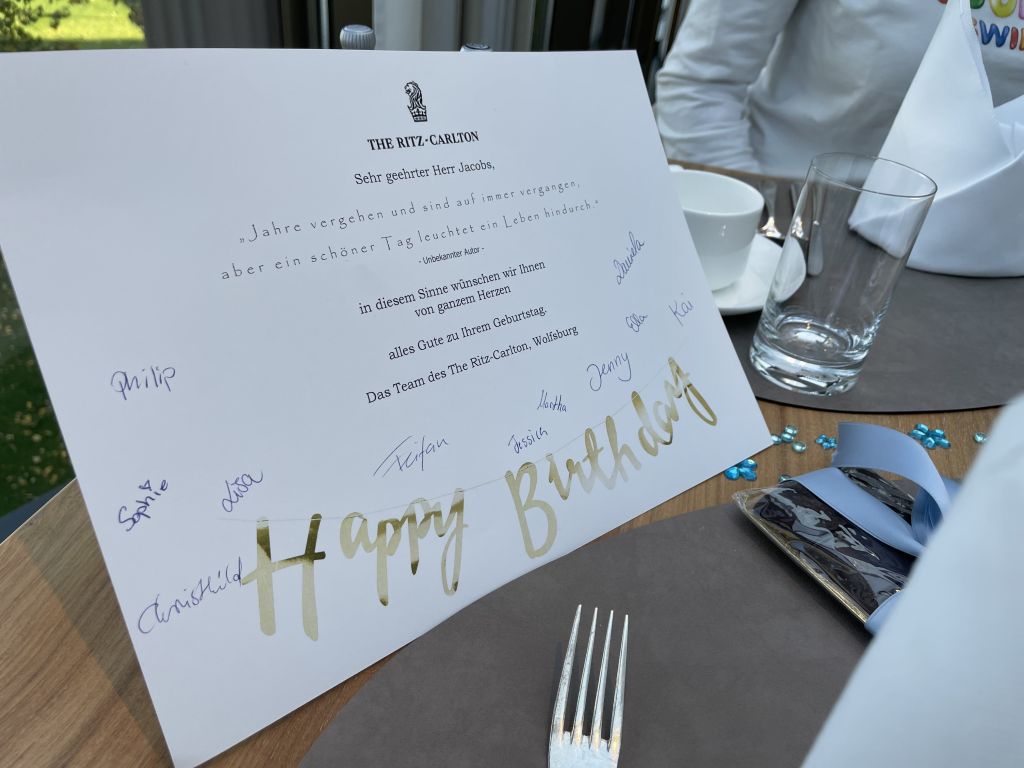 THE RITZ-CARLTON
Sehr geehrter Herr Jacobs,
„Jahre vergehen und sind auf immer vergangen,
aber ein schöner Tag leuchtet ein Leben hindurch.“
- Unbekannter Autor -
in diesem Sinne wünschen wir Ihnen
von ganzem Herzen
alles Gute zu Ihrem Geburtstag.
Das Team des The Ritz-Carlton, Wolfsburg
Daniela
Ella
Kai
Philip
Jenny
Martha
Jessica
Sophie
Lisa
Christhild
Happy Birthday